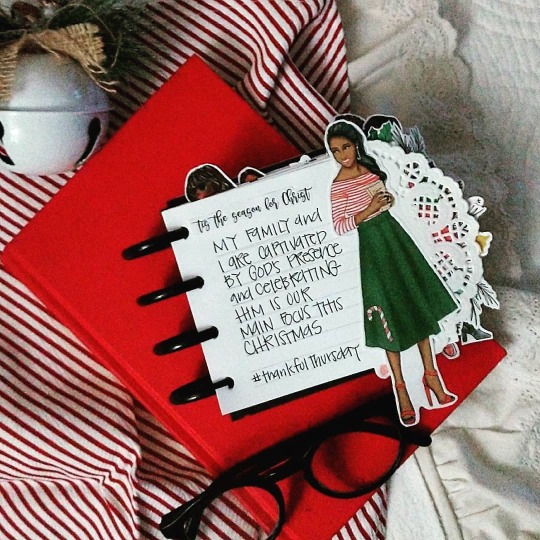 'tis the season for Christ
MY FAMILY and
I are CAPTIVATED
BY GOD'S PRESENCE
and CELEBRATING
HIM IS OUR
MAIN FOCUS THIS
CHRISTMAS
#thankfulThursday